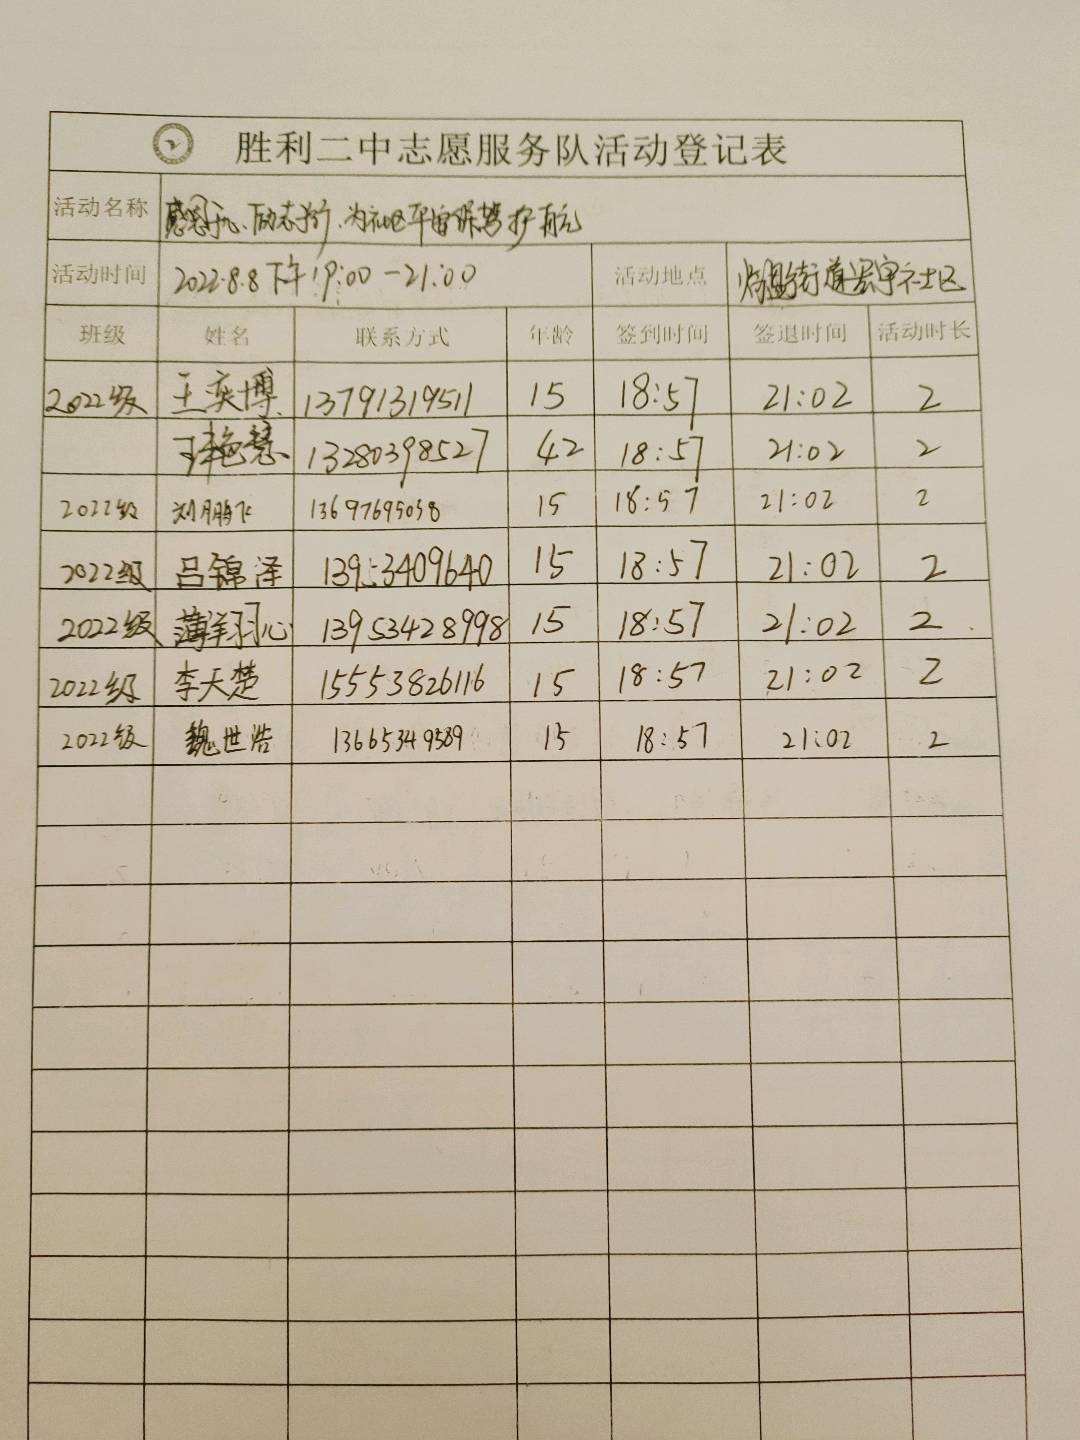 胜利二中志愿服务队活动登记表
活动名称 感恩于心、励志于行、为社区平安保驾护航
活动时间 2022.8.8 下午 19:00-21:00 活动地点 街道 社区
班级 姓名 联系方式 年龄 签到时间 签退时间 活动时长
2022级 王奕博 13791319511 15 18:57 21:02 2
王艳慧 13280398527 42 18:57 21:02 2
2022级 刘鹏飞 13697695058 15 18:57 21:02 2
2022级 吕锦泽 13953409640 15 18:57 21:02 2
2022级 薄翔心 13953428998 15 18:57 21:02 2
2022级 李天楚 15553826116 15 18:57 21:02 2
2022级 魏世浩 13665349589 15 18:57 21:02 2